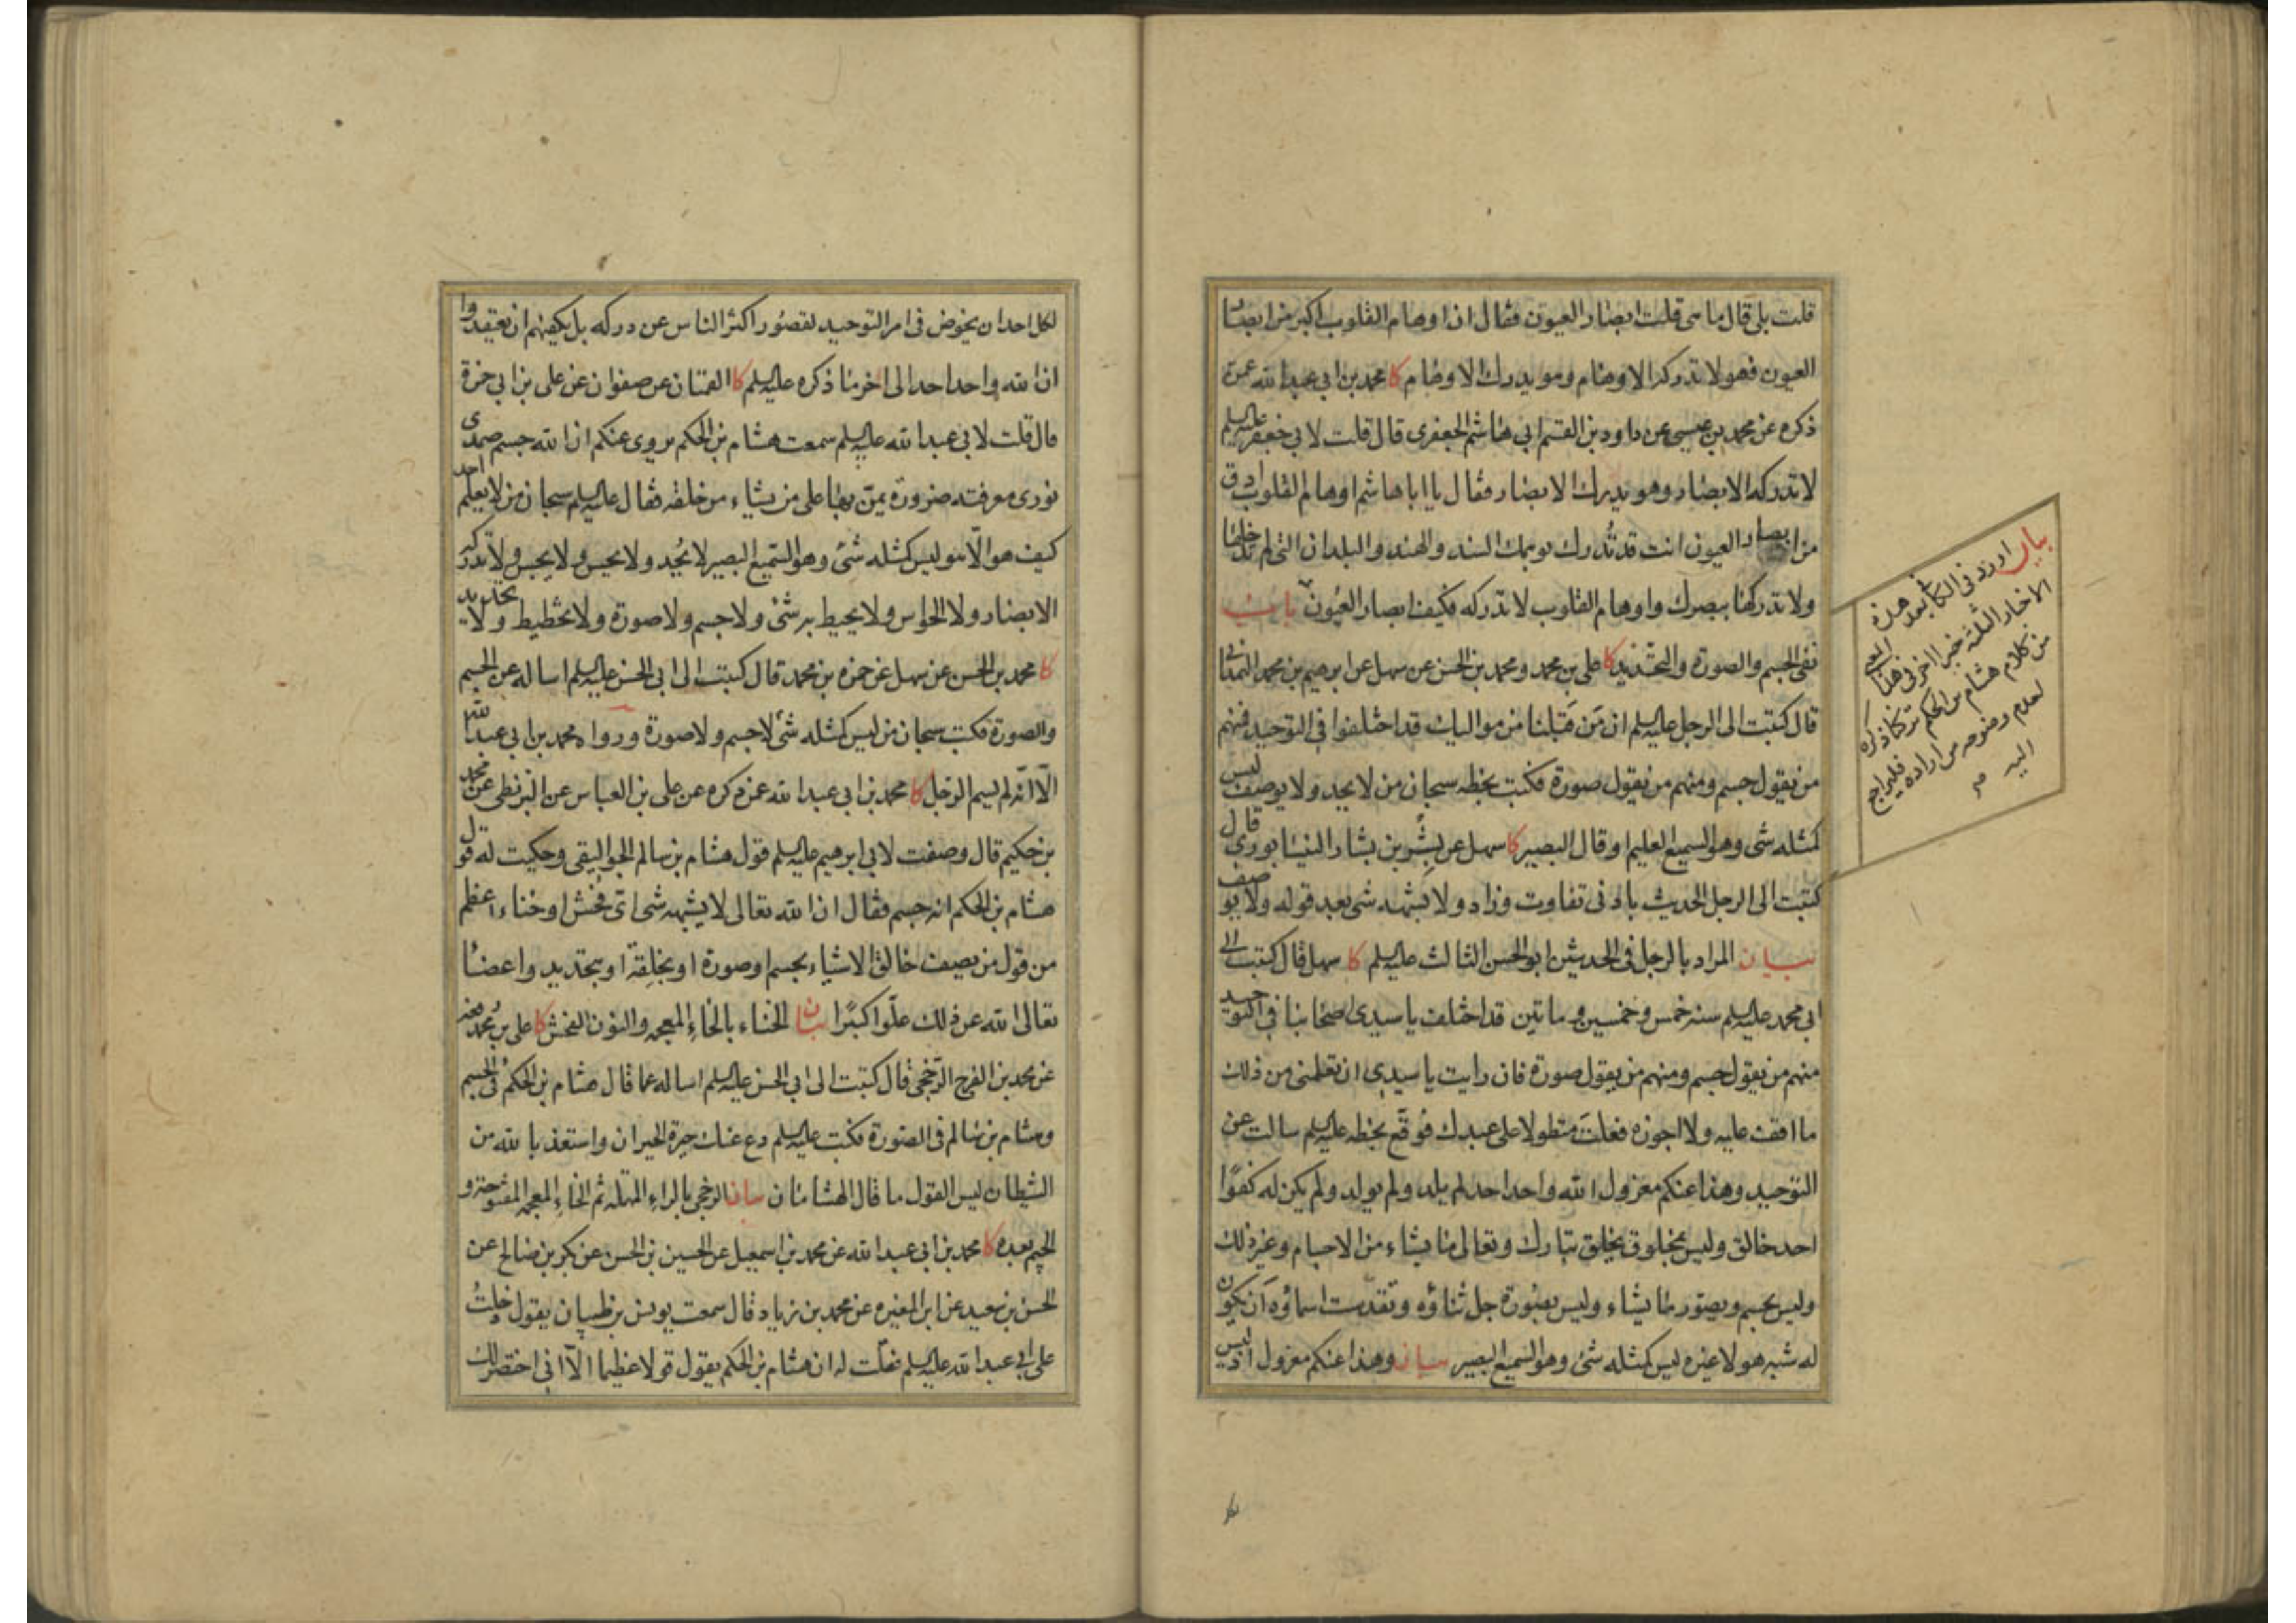 قلت بلى قال ما هي قلت ابصار العيون فقال ان اوهام القلوب اكبر من ابصار
العيون فهو لا تدركه الاوهام وهو يدرك الاوهام كا محمد بن ابي عبد الله عمن
ذكره عن محمد بن عيسى عن داود بن القسم ابي هاشم الجعفري قال قلت لابي جعفر عليه السلم
لا تدركه الابصار وهو يدرك الابصار فقال يا ابا هاشم اوهام القلوب ادق
من ابصار العيون انت قد تُدرك بوهمك السند والهند والبلدان التي لم تدخلها
ولا تدركها ببصرك واوهام القلوب لا تدركه فكيف ابصار العيون باب
نفي الجسم والصورة والتحديد كا علي بن محمد ومحمد بن الحسن عن سهل عن ابرهيم بن محمد الهمداني
قال كتبت الى الرجل عليه السلم ان مَن قبلنا من مواليك قد اختلفوا في التوحيد فمنهم
من يقول جسم ومنهم من يقول صورة فكتب بخطه سبحان من لا يحد ولا يوصف ليس
كمثله شئ وهو السميع العليم او قال البصير كا سهل عن بشر بن بشار النيسابوري قال
كتبت الى الرجل الحديث بادنى تفاوت وزاد ولا يشبهه شئ بعد قوله ولا يوصف
بيان المراد بالرجل في الحديثين ابو الحسن الثالث عليه السلم كا سهل قال كتبت الى
ابي محمد عليه السلم سنه خمس وخمسين وماتين قد اختلف يا سيدي اصحابنا في التوحيد
منهم من يقول جسم ومنهم من يقول صورة فان رايت يا سيدي ان تعلمني من ذلك
ما اقف عليه ولا اجوزه فعلتَ متطولا على عبدك فوقّع بخطه عليه السلم سالت عن
التوحيد وهذا عنكم معزول الله واحد احد لم يلد ولم يولد ولم يكن له كفوًا
احد خالق وليس بمخلوق يخلق تبارك وتعالى ما يشاء من الاجسام وغير ذلك
وليس بجسم ويصور ما يشاء وليس بصورة جل ثناؤه وتقدست اسماؤه اَن يكون
له شبه هو لا غيره ليس كمثله شئ وهو السميع البصير بيان وهذا عنكم معزول اذ ليس
بيان اورد في الكافي بعد هذه
الاخبار الثلثة خبرا اخر في هذا
من كلام هشام بن الحكم تركنا ذكره
لعدم وضوحه من اراده فليراجع
اليه
لكل احد ان يخوض في امر التوحيد لقصور اكثر الناس عن دركه بل يكفيهم ان يعتقدوا
ان الله واحد احد الى اخر ما ذكره عليه السلم كا القميان عن صفوان عن علي بن ابي حمزة
قال قلت لابي عبد الله عليه السلم سمعت هشام بن الحكم يروي عنكم ان الله جسم صمدي
نوري معرفته ضرورة يمنّ بها على من يشاء من خلقه فقال عليه السلم سبحان من لا يعلم احد
كيف هو الّا هو ليس كمثله شئ وهو السميع البصير لا يُحد ولا يحس ولا يجس ولا تدركه
الابصار ولا الحواس ولا يحيط به شئ ولا جسم ولا صورة ولا تخطيط ولا تحديد
كا محمد بن الحسن عن سهل عن حمزة بن محمد قال كتبت الى ابي الحسن عليه السلم اساله عن الجسم
والصورة فكتب سبحان من ليس كمثله شئ لا جسم ولا صورة ورواه محمد بن ابي عبد الله
الّا انّه لم يسم الرجل كا محمد بن ابي عبد الله عمن ذكره عن علي بن العباس عن البزنطي عن محمد
بن حكيم قال وصفت لابي ابرهيم عليه السلم قول هشام بن سالم الجواليقي وحكيت له قول
هشام بن الحكم انه جسم فقال ان الله تعالى لا يشبهه شئ اي فحش او خناء اعظم
من قول من يصف خالق الاشياء بجسم او صورة او بخلقة او بتحديد واعضا
تعالى الله عن ذلك علّوا كبيرًا بيان الخناء بالخاء المعجمه والنون الفحش كا علي بن محمد رفعه
عن محمد بن الفرج الرّخجي قال كتبت الى ابي الحسن عليه السلم اساله عما قال هشام بن الحكم في الجسم
وهشام بن سالم في الصورة فكتب عليه السلم دع عنك حيرة الحيران واستعذ بالله من
الشيطان ليس القول ما قال الهشامان بيان الرخجي بالراء المهمله ثم الخاء المعجمه المفتوحة و
الجيم بعده كا محمد بن ابي عبد الله عن محمد بن اسمعيل عن الحسين بن الحسن عن بكر بن صالح عن
الحسن بن سعيد عن ابن المغيره عن محمد بن زياد قال سمعت يونس بن ظبيان يقول دخلتُ
على ابي عبد الله عليه السلم فقلت له ان هشام بن الحكم يقول قولا عظيما الّا اني اختصر لك